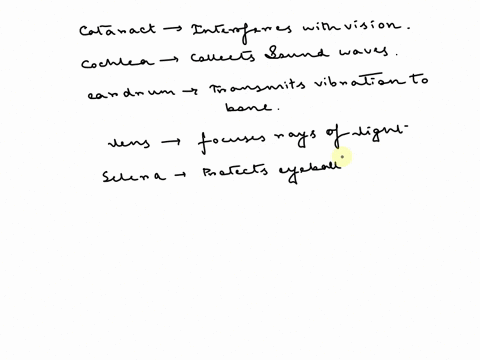 Cataract → Interferes with vision.
Cochlea → Collects Sound waves.
eardrum → Transmits vibration to
bone.
lens → focuses rays of light
Sclera → Protects eyeball